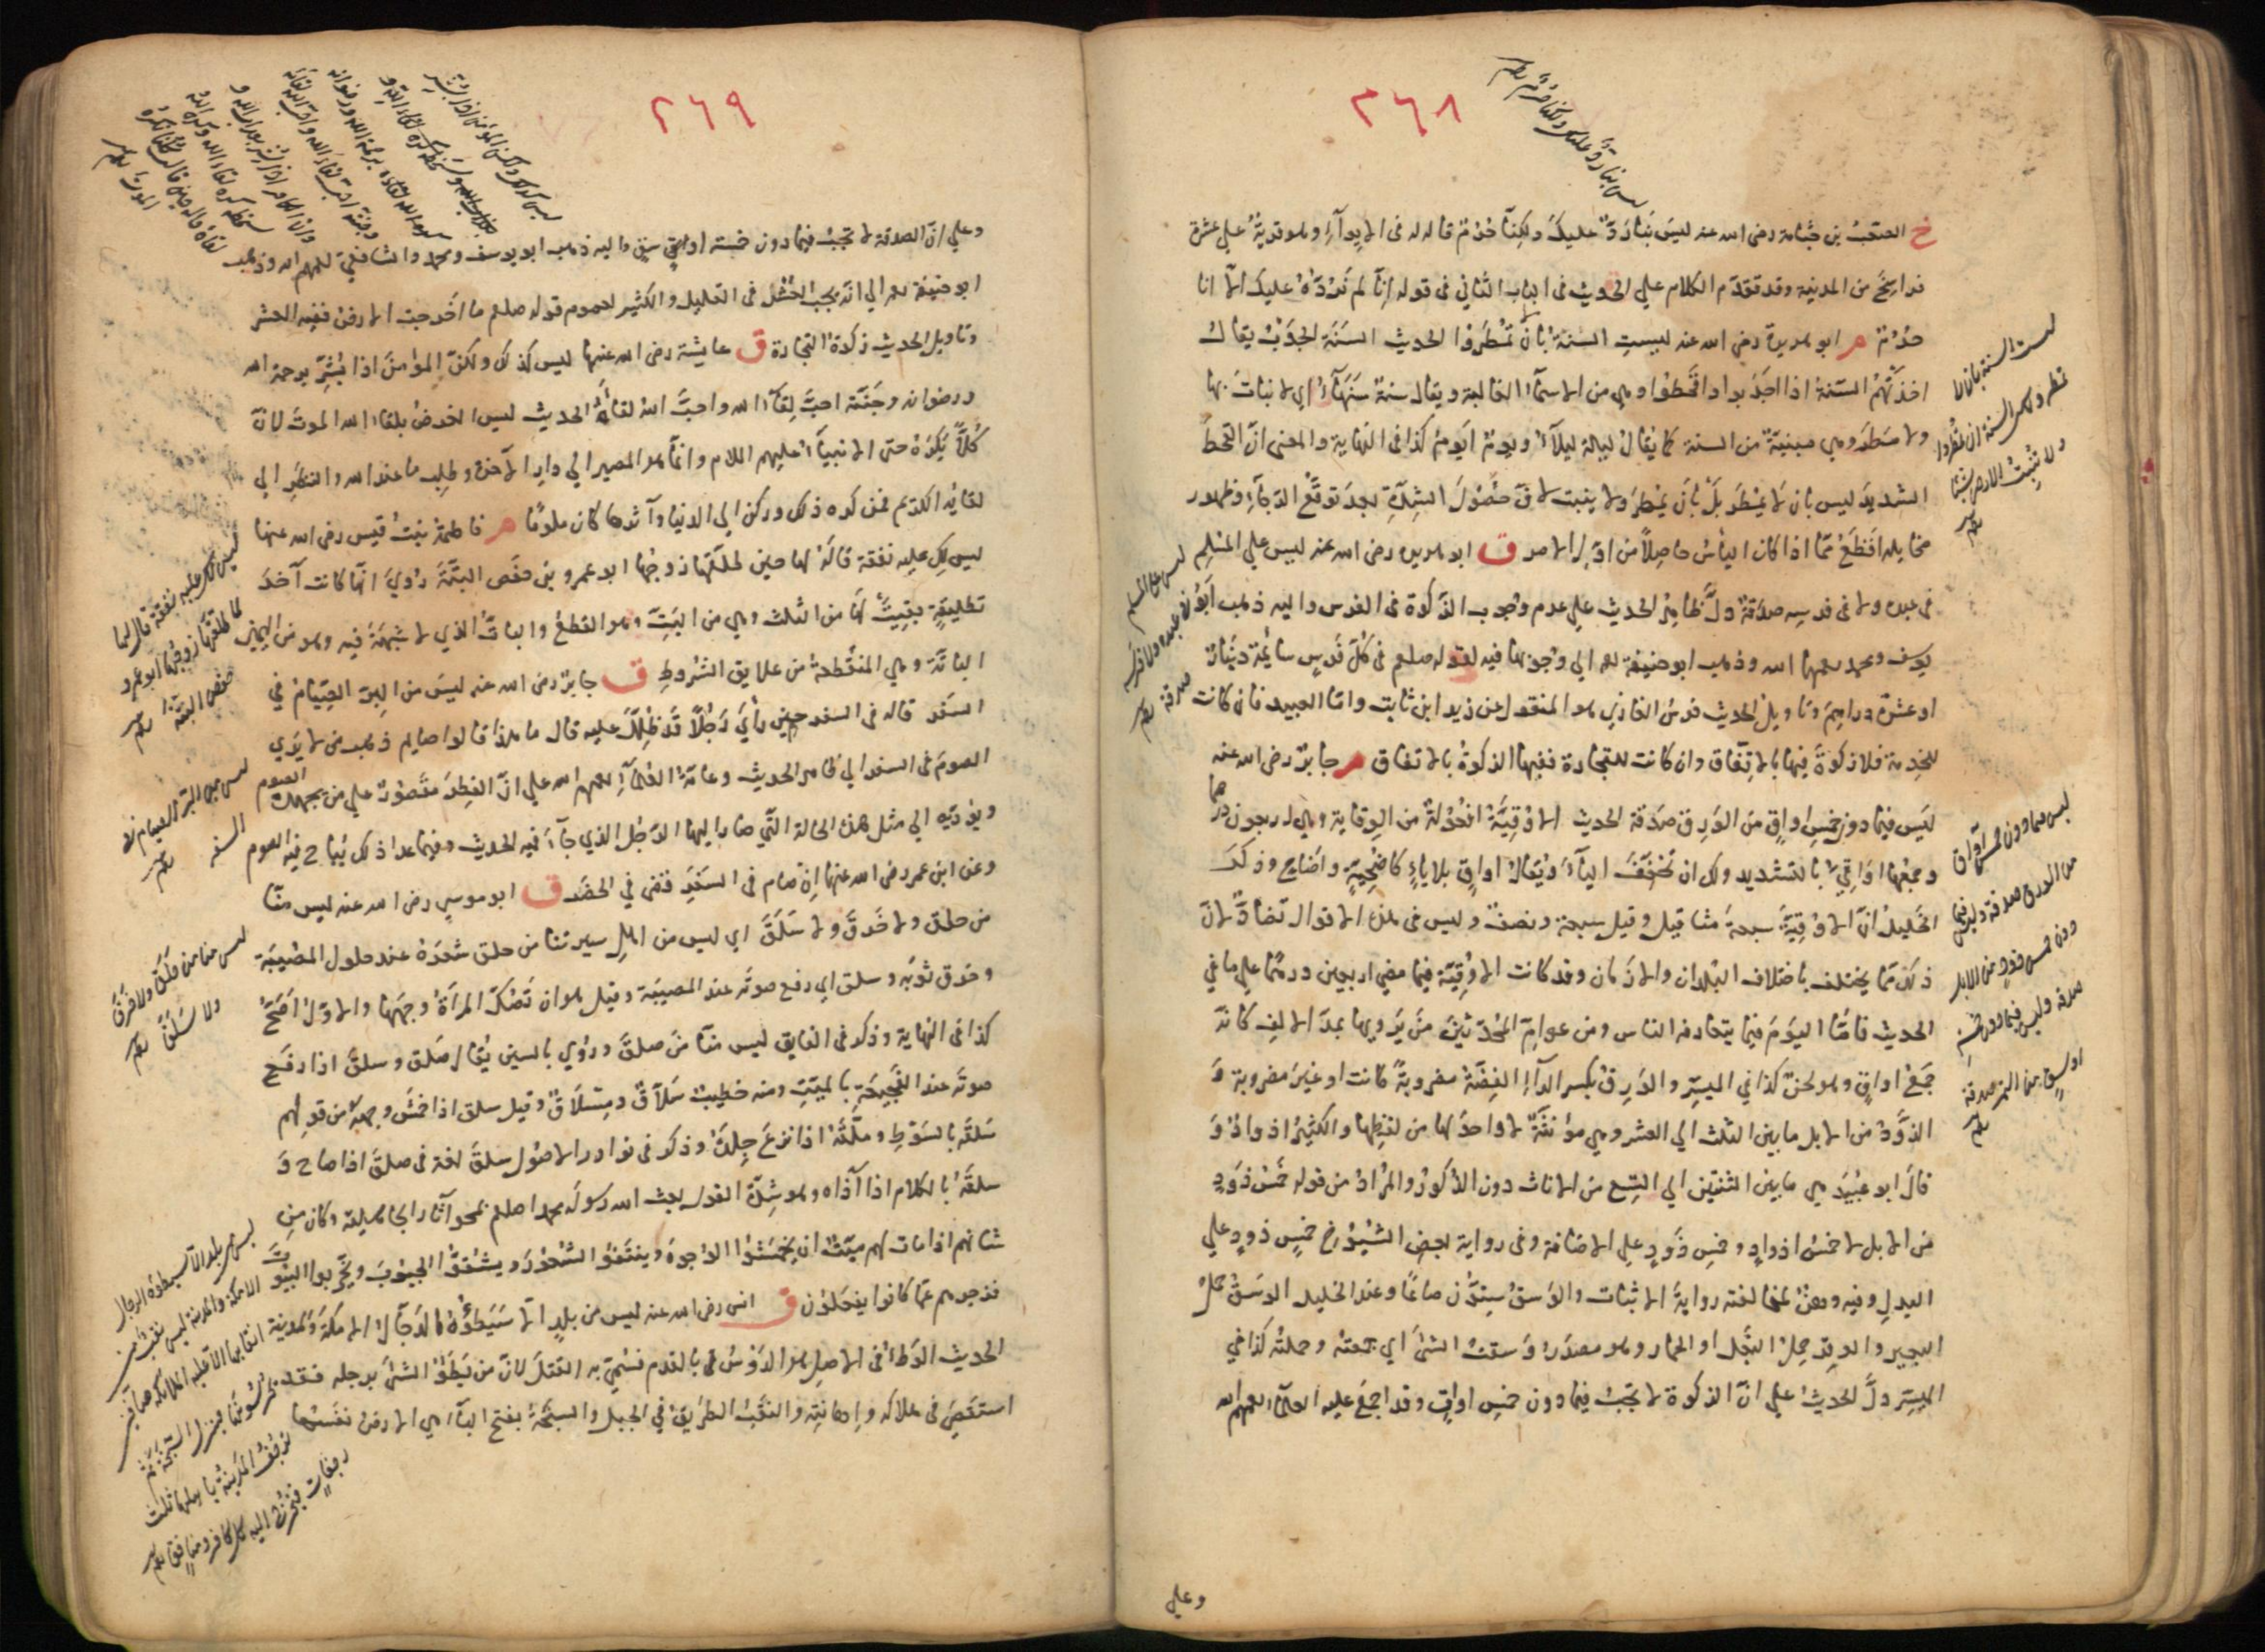 ٢٦٨
خ الصعب بن جثامة رضى الله عنه ليس بنا رَدٌّ عليك ولكنا حُرُمٌ قاله له فى الابوآء وهو قرية على عشرة
فراسخ من المدينة وقد تقدم الكلام على الحديث فى الباب الثانى فى قوله انا لم نرده عليك الا انا
حُرُمٌ م ابو هريرة رضى الله عنه ليست السنة بان لا تمطروا الحديث السنة الجدب يقال
اخذتهم السنة اذا اجدبوا واقحطوا وهى من الاسمآء الغالبة ويقال سنة سنهآء اى لا نبات بها
ولا مطر وهى مبنية من السنة كما يقال ليلة ليلآء ويوم ايوم كذا فى النهاية والمعنى ان القحط
الشديد ليس بان لا يمطر بل بان يمطر ولا ينبت لان حصول الشدة بعد توقع الرجآء وظهور
مخايله افظع مما اذا كان اليأس حاصلا من اول الامر ق ابو هريره رضى الله عنه ليس على المسلم
فى عبده ولا فى فرسه صدقة دل ظاهر الحديث على عدم وجوب الزكوة فى الفرس واليه ذهب ابو
يوسف ومحمد رحمهما الله وذهب ابو حنيفة رحمه الى وجوبها فيه لقوله صلعم فى كل فرس سايمة دينار
او عشرة دراهم وتاويل الحديث فرس الغازى هو المنقول عن زيد ابن ثابت واما العبيد فان كانت
للخدمة فلا زكوة فيها بالاتفاق وان كانت للتجارة ففيها الزكوة بالاتفاق م جابر رضى الله عنه
ليس فيما دون خمس اواق من الورق صدقة الحديث الاوقية افعولة من الوقاية وهى اربعون درهما
وجمعها اواقى بالتشديد ولك ان تخفف اليآء ويقال اواق بلا ياء كاضحية واضاح وذكر
الخليل ان الاوقية سبعة مثاقيل وقيل سبعة ونصف وليس فى هذه الاقوال تضاد لان
ذلك مما يختلف باختلاف البلدان والازمان وقد كانت الاوقية فيما مضى اربعين درهما على ما فى
الحديث فاما اليوم فيما يتعارفه الناس ومن عوام المحدثين من يرويها بمد الالف كانه
جمع اواق وهو لحن كذا فى الميسر والورق بكسر الرآء الفضة مضروبة كانت او غير مضروبة و
الذود من الابل ما بين الثلث الى العشر وهى مؤنثة لا واحد لها من لفظها والكثير اذواد و
قال ابو عبيد هى ما بين الثنتين الى التسع من الاناث دون الذكور والمراد من قوله خمس ذود
من الابل لا خمس اذواد وخمس ذود على الاضافة وفى رواية بعض الشيوخ خمس ذود على
البدل وفيه وهن لمخالفته رواية الاثبات والوسق ستون صاعا وعند الخليل الوسق حمل
البعير والوقر حمل البغل او الحمار وهو مصدر وسقت الشئ اى جمعته وحملته كذا فى
الميسر دل الحديث على ان الزكوة لا تجب فيما دون خمس اواق وقد اجمع عليه العلمآء رحمهم الله
وعلى
ليس بنا ردٌّ عليك ولكنا حُرُم
ليست السنة بان لا
تمطروا ولكن السنة ان تمطروا
ولا تنبت الارض شيئا
ليس على المسلم
فى عبده ولا فرسه
صدقة
ليس فيما دون خمس اواق
من الورق صدقة وليس فيما
دون خمس ذود من الابل
صدقة وليس فيما دون خمسة
اوسق من التمر صدقة
٢٦٩
وعلى ان الصدقة لا تجب فيما دون خمسة اواق واليه ذهب ابو يوسف ومحمد والشافعى رحمهم الله وذهب
ابو حنيفة رحمه الى انه يجب العشر فى القليل والكثير لعموم قوله صلعم ما اخرجت الارض ففيه العشر
وتاويل الحديث زكوة التجارة ق عايشة رضى الله عنها ليس كذلك ولكن المؤمن اذا بشر برحمة الله
ورضوانه وجنته احب لقآء الله واحب الله لقاءه الحديث ليس الغرض بلقاء الله الموت لان
كلا يكرهه حتى الانبيآء عليهم السلام وانما هو المصير الى دار الآخرة وطلب ما عند الله والنظر الى
لقائه الكريم فمن كره ذلك وركن الى الدنيا وآثرها كان ملوما م فاطمة بنت قيس رضى الله عنها
ليس لك عليه نفقة قاله لها حين طلقها زوجها ابو عمرو بن حفص البتة روى انها كانت آخر
تطليقة بقيت لها من الثلث وهى من البت وهو القطع والبات الذى لا شبهة فيه وهو من اليمين
الباتة وهى المنقطعة من علايق الشروط ق جابر رضى الله عنه ليس من البر الصيام فى
السفر قاله فى السفر حين رأى رجلا قد ظلل عليه قال ما هذا قالوا صايم ذهب من لا يرى
الصوم فى السفر الى ظاهر الحديث وعامة العلمآء رحمهم الله على ان الفطر مقصور على من يجهده الصوم
ويؤديه الى مثل هذه الحالة التى صار اليها الرجل الذى جآء فيه الحديث وفيما عدا ذلك يباح فيه الصوم
وعن ابن عمر رضى الله عنهما ان صام فى السفر قضى فى الحضر ق ابو موسى رضى الله عنه ليس منا
من حلق ولا خرق ولا سلق اى ليس من اهل سيرتنا من حلق شعره عند حلول المصيبة
وخرق ثوبه وسلق اى رفع صوته عند المصيبة وقيل هو ان تصك المرأة وجهها والاول اصح
كذا فى النهاية وذكر فى الفايق ليس منا من صلق وروى بالسين يقال صلق وسلق اذا رفع
صوته عند الفجيعة بالميت ومنه خطيب سلاق ومسلاق وقيل سلق اذا خمش وجهه من قولهم
سلقه بالسوط وملقه اذا نزع جلده وذكر فى نوادر الاصول سلق لغة فى صلق اذا صاح و
سلقه بالكلام اذا آذاه وهو شدة القول بعث الله رسوله محمدا صلعم بمحو آثار الجاهلية وكان من
شانهم اذا مات لهم ميت ان يخمشوا الوجوه وينتفوا الشعور ويشققوا الجيوب ويخربوا البيوت
فزجرهم عما كانوا يفعلون ق انس رضى الله عنه ليس من بلد الا سيطؤه الدجال الا مكة والمدينة
الحديث الوطء فى الاصل هو الدوس بالقدم فسمى به القتل لان من يطؤ الشئ برجله فقد
استقصى فى هلاكه واهانته والنقب الطريق فى الجبل والسبخة بفتح البآء هى الارض نفسها
ليس كذلك ولكن المؤمن اذا بشر
برحمة الله ورضوانه
وجنته احب لقاء الله واحب الله لقاءه
وان الكافر اذا بشر بعذاب الله و
سخطه كره لقاء الله وكره الله
ليس لك عليه نفقة قاله لها
لما طلقها زوجها ابو عمرو
حفص البتة
ليس من البر الصيام فى
السفر
ليس منا من حلق ولا خرق
ولا سلق
ليس من بلد الا سيطؤه الرجال
الا مكة والمدينة ليس نقب من
انقابها الا عليه الملائكة صافين
يحرسونها فينزل السبخة ثم
ترجف المدينة باهلها ثلث
رجفات فيخرج اليه كل كافر ومنافق